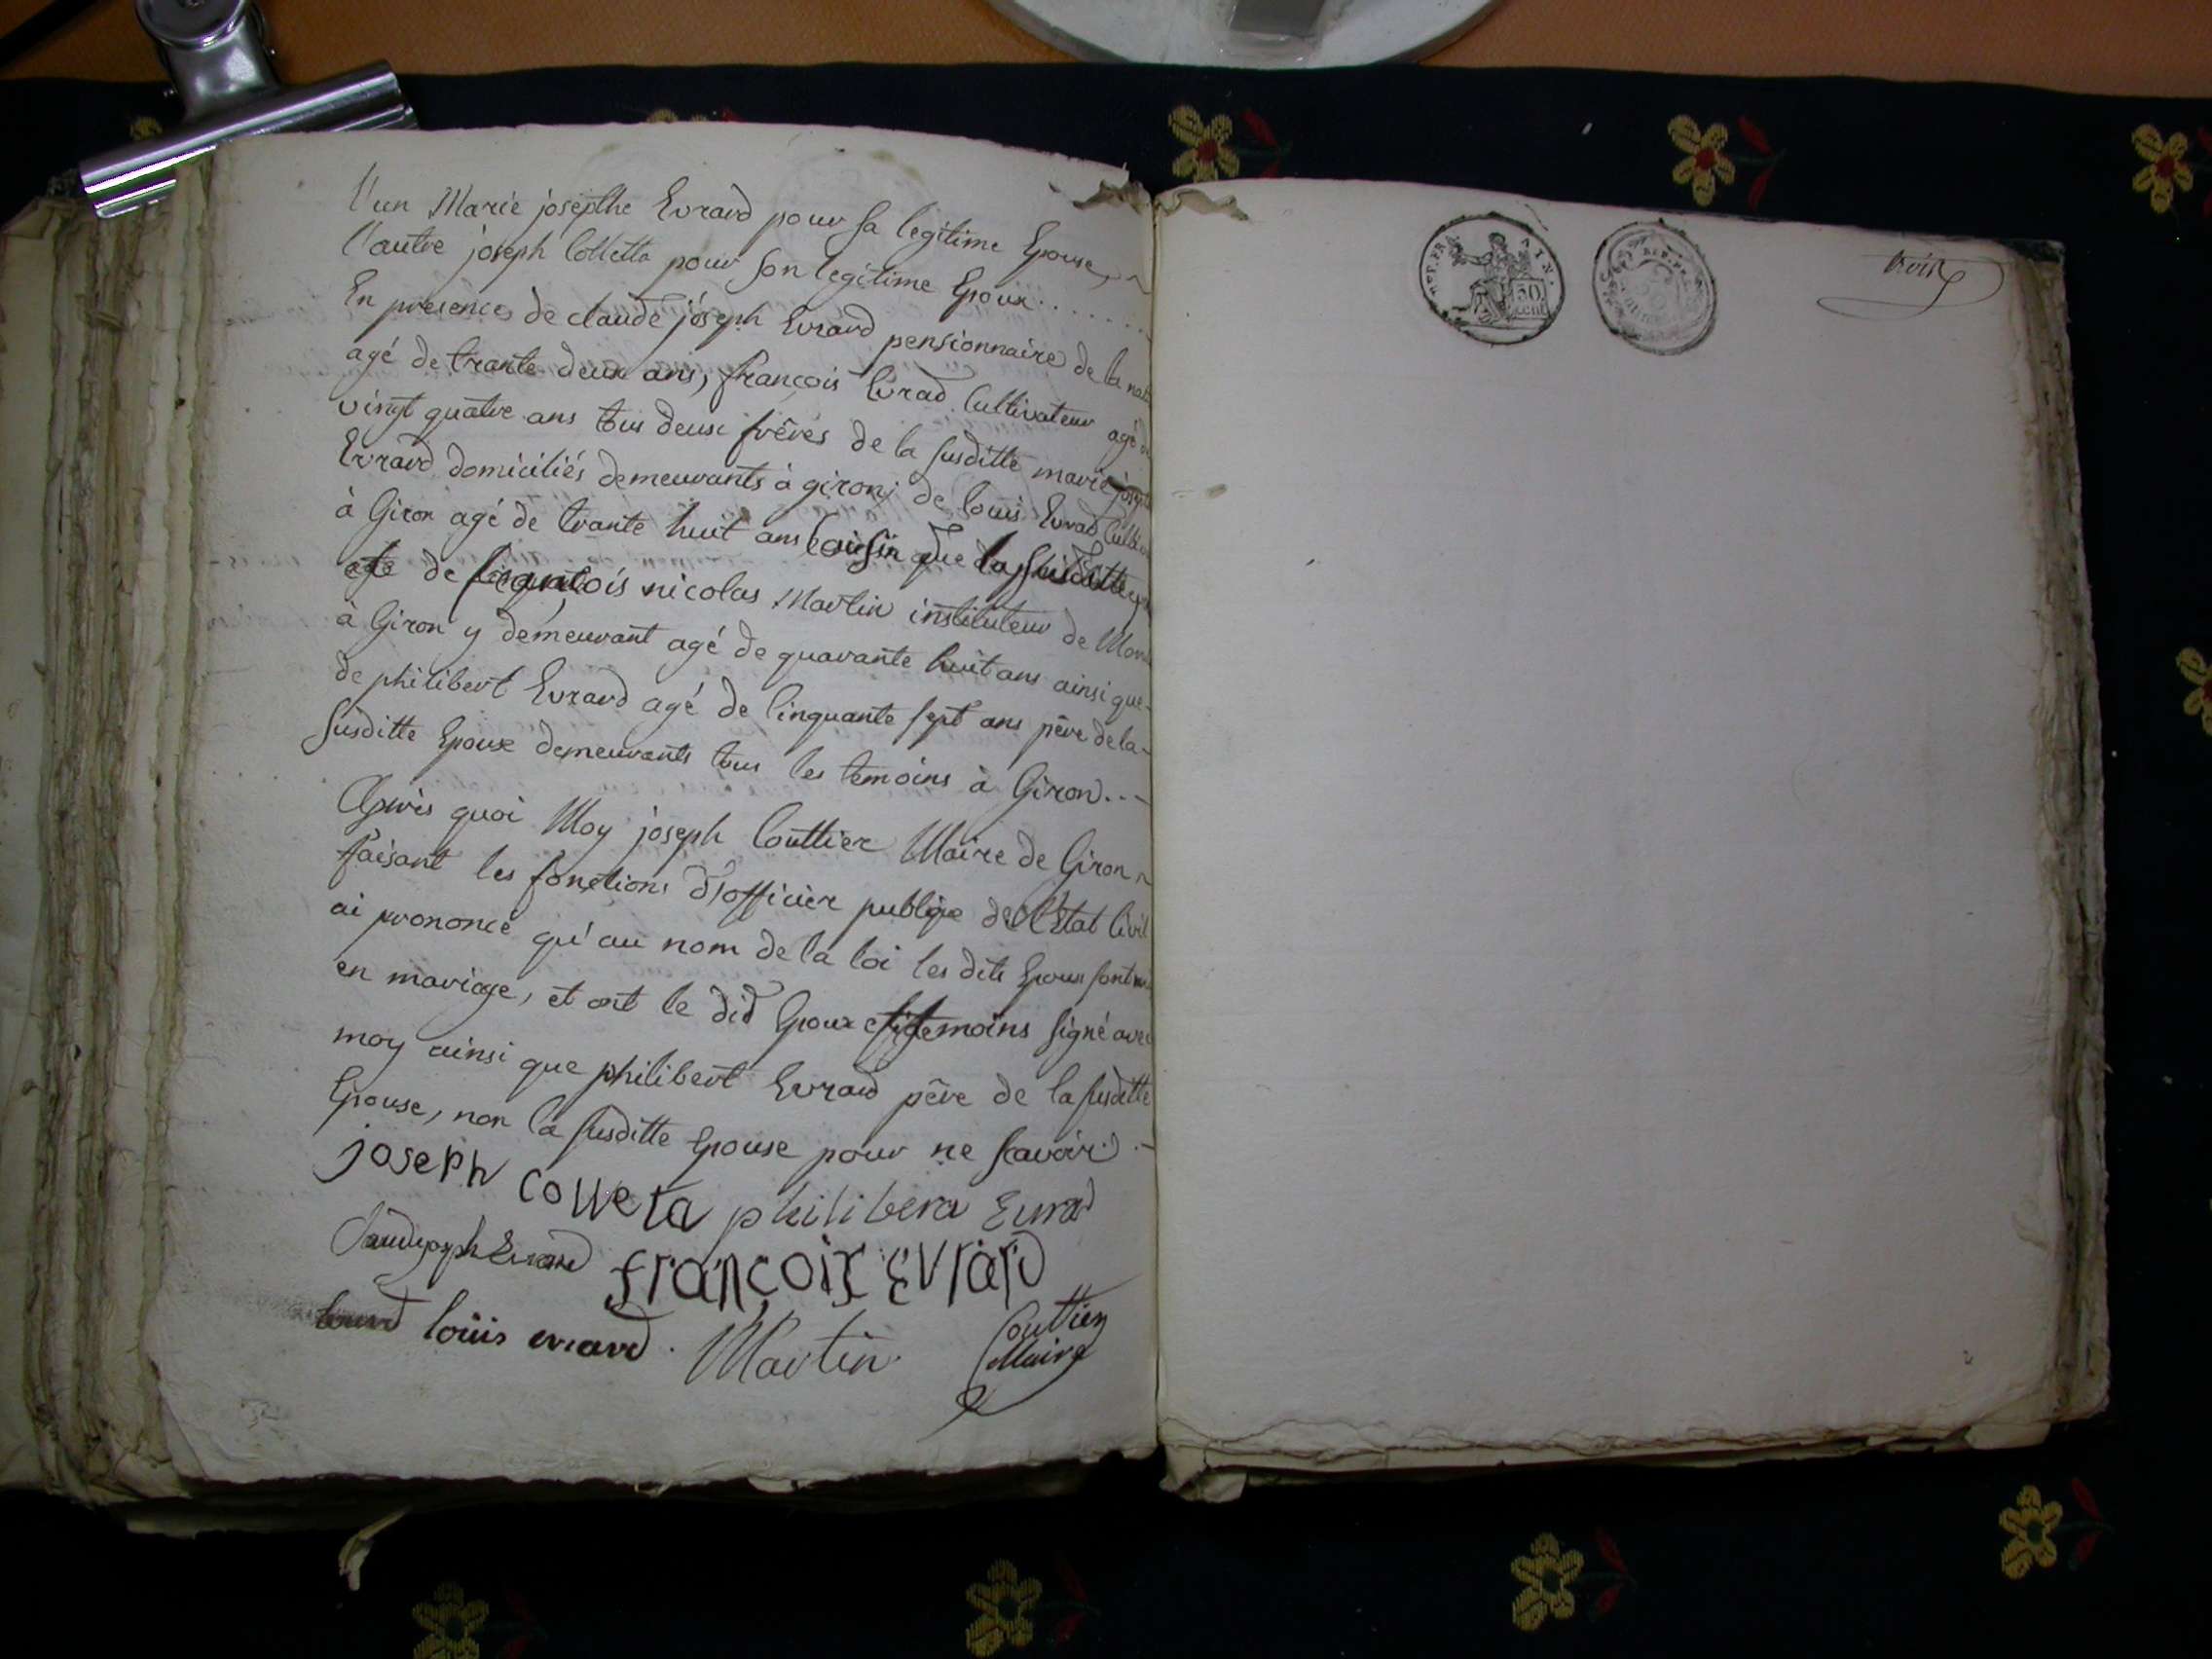 l'un Marie josephe Evrard pour sa legitime Epouse,
l'autre joseph Colletta pour son legitime Epoux.......
En presence de claude joseph Evrard pensionnaire de la nati
agé de trante deux ans, françois Evrad Cultivateur agé de
vingt quatre ans tous deux frêres de la susditte marie josephe
Evrard domiciliés demeurants à giron; de louis Evrad Cultiva
à Giron agé de trante huit ans Cousin de la susditte
de françois nicolas Martin instituteur de Mon
à Giron y demeurant agé de quarante huit ans ainsi que
de philibert Evrard agé de Cinquante sept ans pêre de la
susditte Epouse demeurants tous les temoins à Giron...
Après quoi Moy joseph Couttier Maire de Giron
faisant les fonctions d'officier publique de l'Etat Civil
ai prononcé qu'au nom de la loi les dits Epoux sont
en mariage, et ont le did Epoux et temoins signé avec
moy ainsi que philibert Evrard pêre de la susditte
Epouse, non la susditte Epouse pour ne scavoir.
joseph colleta philibera Evrad
Claudejoseph Evrard françois Evrard
louis evrard. Martin Couttier
Maire
REP. FRA
50
cent
trois